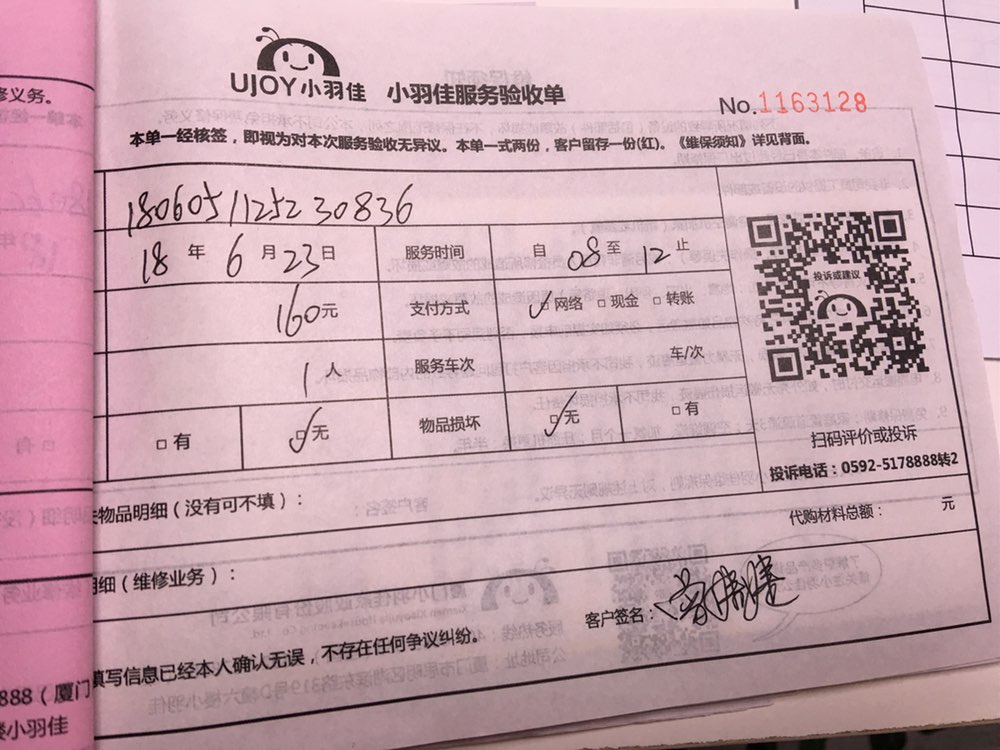 UJOY小羽佳 小羽佳服务验收单
No.1163128
本单一经核签，即视为对本次服务验收无异议。本单一式两份，客户留存一份(红)。《维保须知》详见背面。
180605112523 0836
18 年 6 月 23 日 服务时间 自 08 至 12 止
160元 支付方式 网络 现金 转账
1 人 服务车次 车/次
有 无 物品损坏 无 有
投诉或建议
扫码评价或投诉
投诉电话：0592-5178888转2
物品明细（没有可不填）：
代购材料总额： 元
明细（维修业务）：
客户签名：
填写信息已经本人确认无误，不存在任何争议纠纷。
修义务。
888（厦门
楼小羽佳